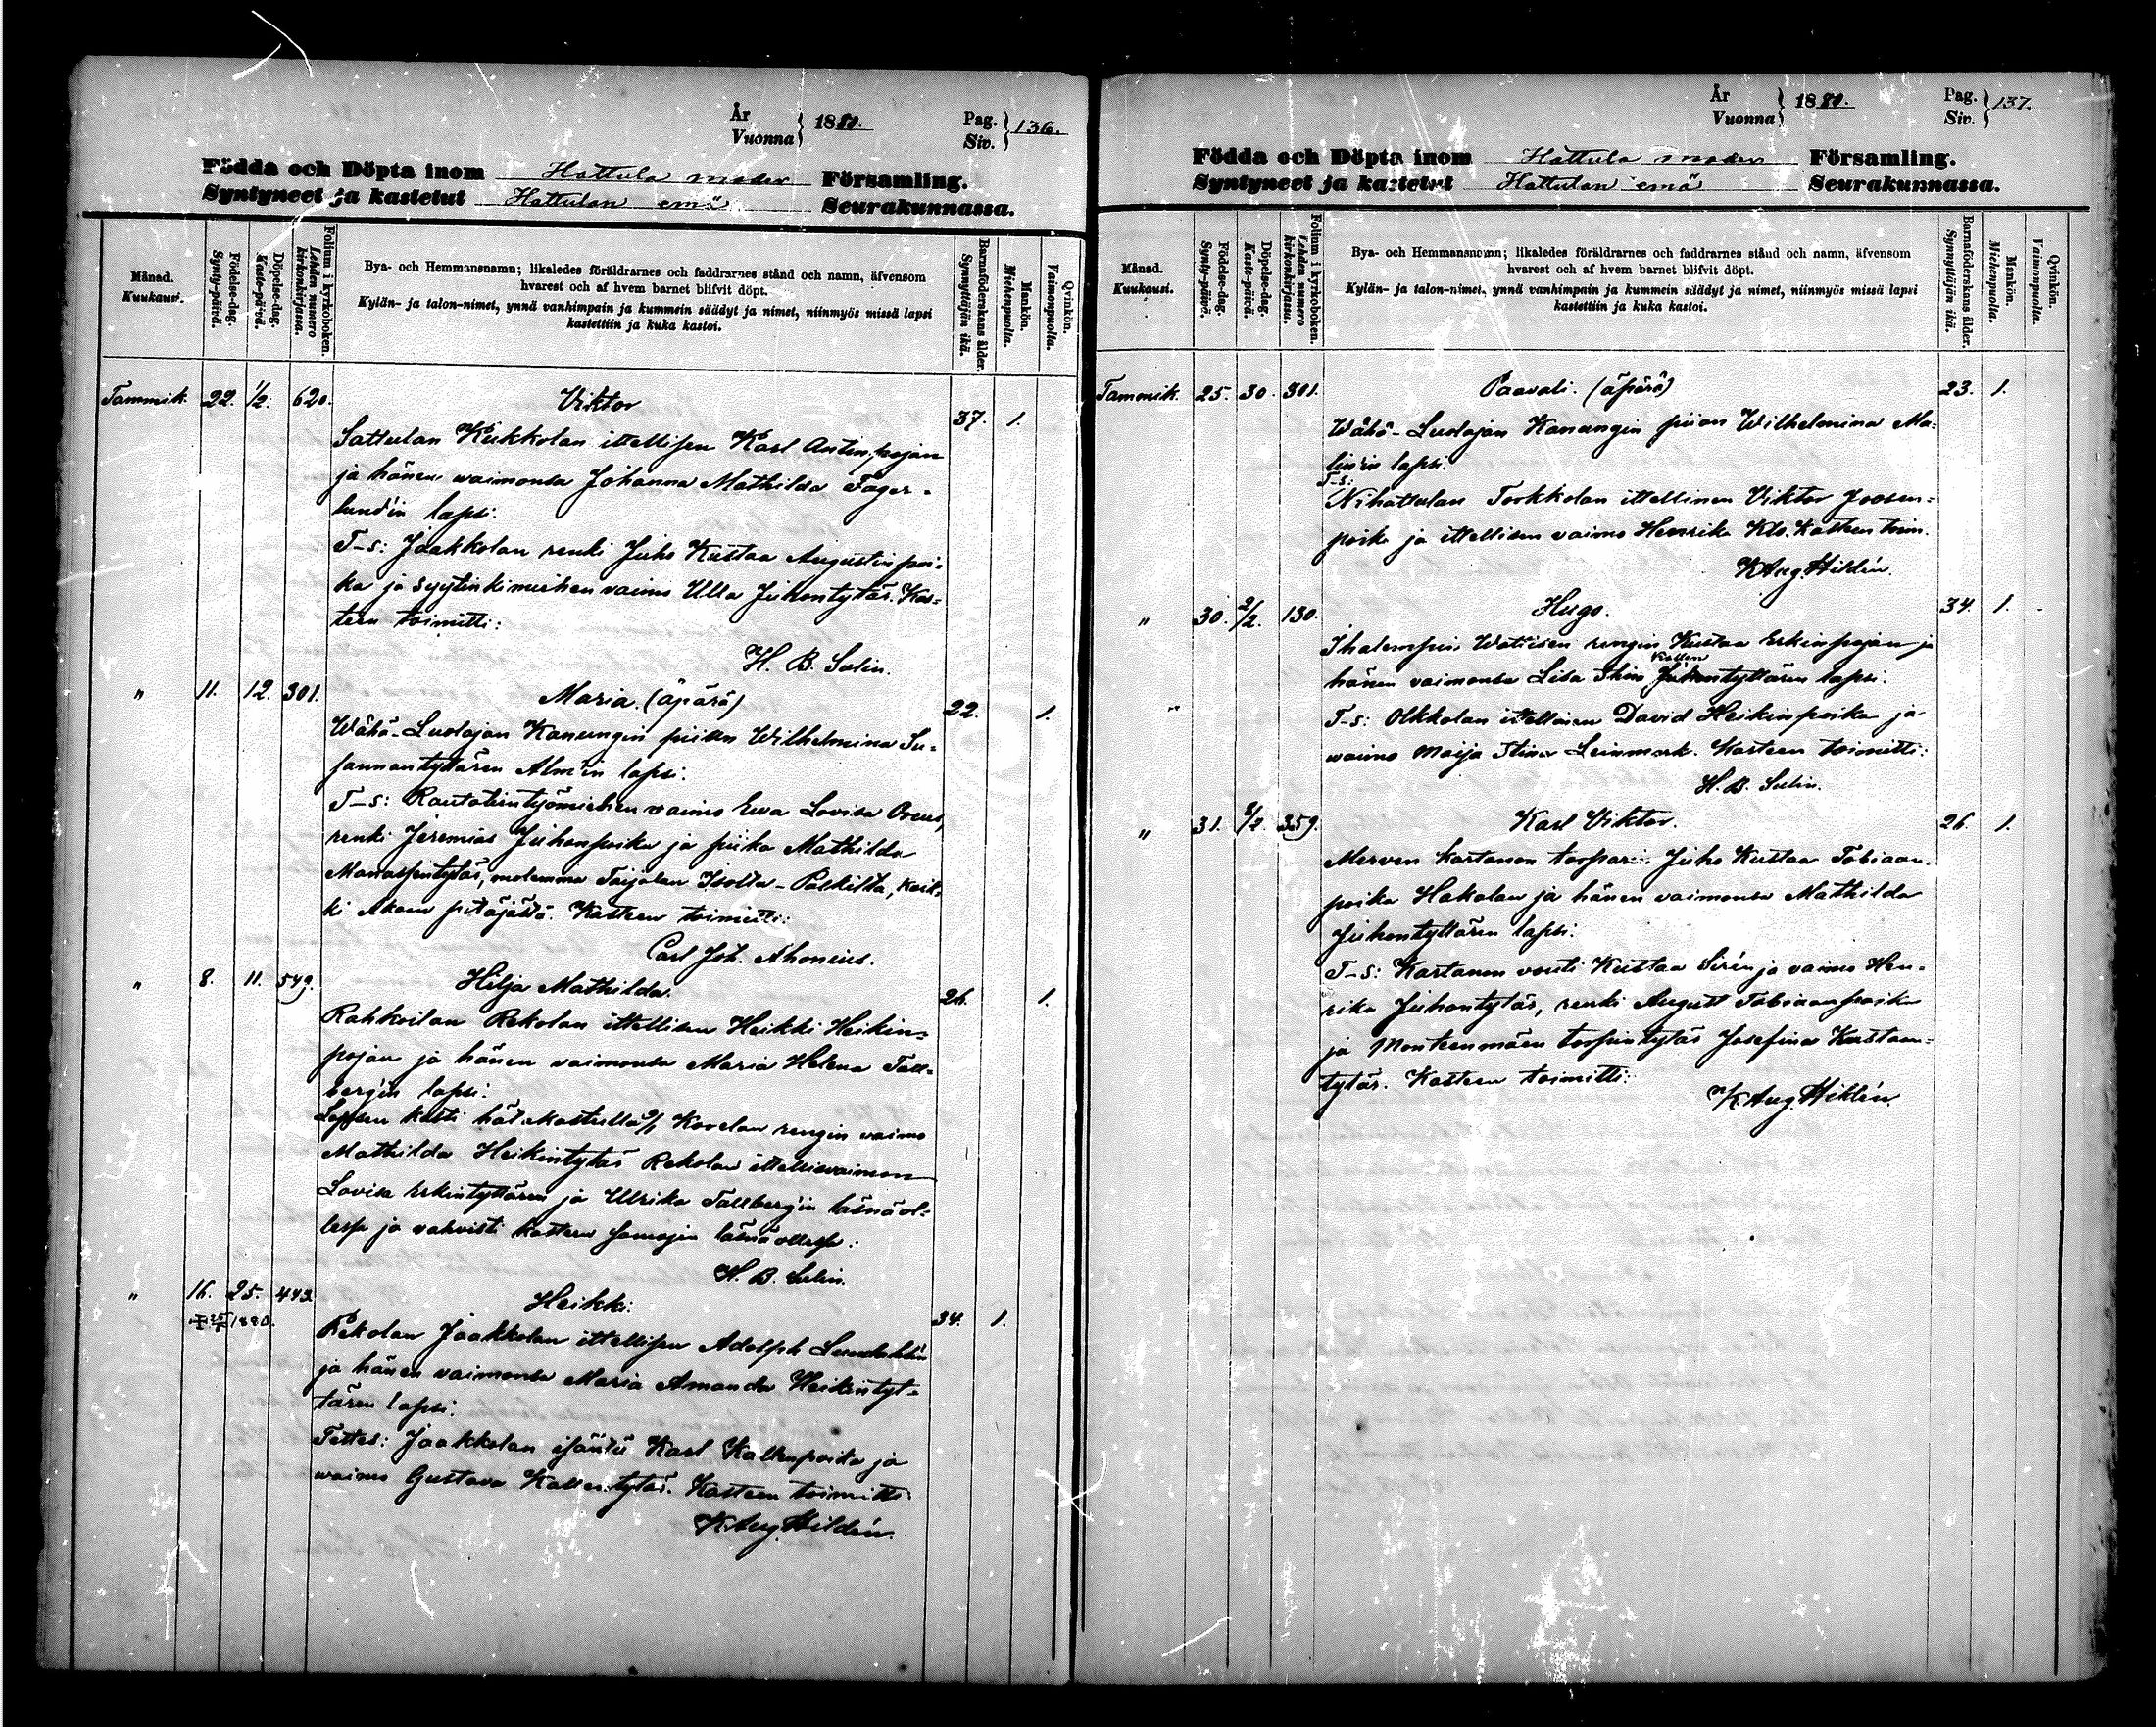 År
Vuonna } 1880.
Pag.
Siv. } 136.
Födda och Döpta inom Hattula moder Församling.
Syntyneet ja kastetut Hattulan emä Seurakunnassa.
Månad.
Kuukausi.
Födelse-dag.
Synty-päivä.
Döpelse-dag.
Kaste-päivä.
Folium i kyrkoboken.
Lehden numero kirkonkirjassa.
Bya- och Hemmansnamn; likaledes föräldrarnes och faddrarnes stånd och namn, äfvensom
hvarest och af hvem barnet blifvit döpt.
Kylän- ja talon-nimet, ynnä vanhimpain ja kummein säädyt ja nimet, niinmyös missä lapsi
kastettiin ja kuka kastoi.
Barnaföderskans ålder.
Synnyttäjän ikä.
Mankön.
Miehenpuolta.
Qvinkön.
Vaimonpuolta.
Tammik. 22. 1/2. 620. Viktor 37. 1.
Sattulan Kukkolan ittellisen Karl Antinpojan
ja hänen waimonsa Johanna Mathilda Fager-
lund'in lapsi.
T-s: Jaakkolan renki Juho Kustaa Augustinpoi-
ka ja syytinkimiehen vaimo Ulla Juhontytär. Kas-
teen toimitti:
H. B. Sulin.
" 11. 12. 301. Maria. (äpärä) 22. 1.
Wähä-Luolajan Kanungin piian Wilhelmina Su-
sannantyttären Alm'in lapsi.
T-s: Rautatientyömiehen vaimo Ewa Lovisa
renki Jeremias Juhonpoika ja piika Mathilda
Manassentytär, molemma Taijalan Isolta-Paskilta, kaik-
ki Akaan pitäjästä. Kasteen toimitti:
Carl Joh. Ahonius.
" 8. 11. 549. Hilja Mathilda. 26. 1.
Rahkoilan Rekolan ittellisen Heikki Heikin-
pojan ja hänen vaimonsa Maria Helena Tall-
berg'in lapsi.
Lapsen kasti hätäkastella 9/1 Kovelan rengin vaimo
Mathilda Heikintytär Rekolan ittellisvaimon
Lovisa Erkintyttären ja Ulrika Tallberg'in läsnäol-
lessa ja vahvisti kasteen samojen läsnäollessa:
H. B. Sulin.
" 16. 25. 443. Heikki. 34. 1.
1880.
Rekolan Jaakkolan ittellisen Adolph
ja hänen vaimonsa Maria Amanda Heikintyt-
tären lapsi.
Testes: Jaakkolan isäntä Karl Kallenpoika ja
waimo Gustava Kallentytär. Kasteen toimitti
K. Aug. Hildén.
År
Vuonna } 1880.
Pag.
Siv. } 137.
Födda och Döpta inom Hattula moder Församling.
Syntyneet ja kastetut Hattulan emä Seurakunnassa.
Månad.
Kuukausi.
Födelse-dag.
Synty-päivä.
Döpelse-dag.
Kaste-päivä.
Folium i kyrkoboken.
Lehden numero kirkonkirjassa.
Bya- och Hemmansnamn; likaledes föräldrarnes och faddrarnes stånd och namn, äfvensom
hvarest och af hvem barnet blifvit döpt.
Kylän- ja talon-nimet, ynnä vanhimpain ja kummein säädyt ja nimet, niinmyös missä lapsi
kastettiin ja kuka kastoi.
Barnaföderskans ålder.
Synnyttäjän ikä.
Mankön.
Miehenpuolta.
Qvinkön.
Vaimonpuolta.
Tammik. 25. 30. 301. Paavali. (äpärä) 23. 1.
Wähä-Luolajan Kanungin piian Wilhelmina Ma-
lin'in lapsi.
T-s:
Nihattulan Torkkolan ittellinen Viktor Joosen-
poika ja ittellisen vaimo Henrika Kasteen toim.
K. Aug. Hildén.
" 30. 2/2. 130. Hugo. 34. 1.
Ihalempin Watisen rengin Kustaa Erkinpojan ja
Kallen
hänen vaimonsa Lisa Stina Juhontyttären lapsi.
T-s: Olkkolan ittellinen David Heikinpoika ja
waimo Maija Stina Leinmark. Kasteen toimitti:
H. B. Sulin.
" 31. 8/2. 359. Karl Viktor. 26. 1.
Merven kartanon torpari Juho Kustaa Tobiaan-
poika Hakalan ja hänen vaimonsa Mathilda
Juhontyttären lapsi.
T-s: Kartanon vouti Kustaa Sirén ja vaimo Hen-
rika Juhontytär, renki August Tobiaanpoika
ja Monteenmäen torpintytär Josefina Kustaan-
tytär. Kasteen toimitti:
K. Aug. Hildén.